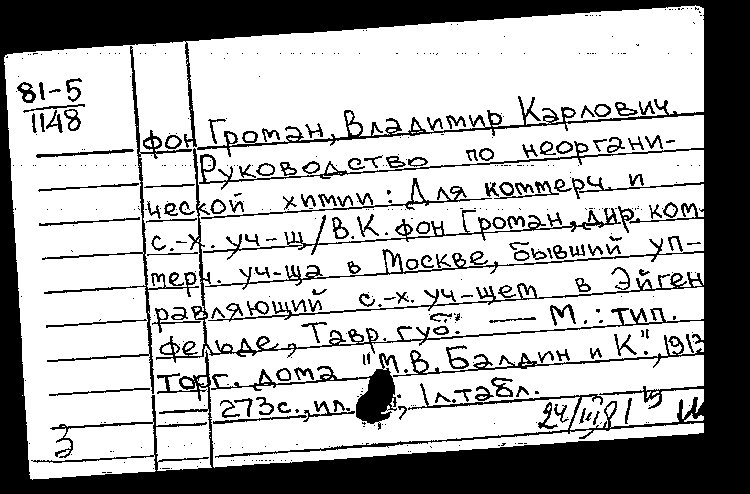 81-5
1148
фон Громан, Владимир Карлович.
Руководство по неоргани-
ческой химии: Для коммерч. и
с.-х. уч-щ/В.К. фон Громан, дир. ком-
терч. уч-ща в Москве, бывший уп-
равляющий с.-х. уч-щем в Эйген
фельде, Тавр. губ. — М.: тип.
торг. дома "М.В. Балдин и К.", 1913
— 273с., ил. ; 1л. табл.
3 24/III 81